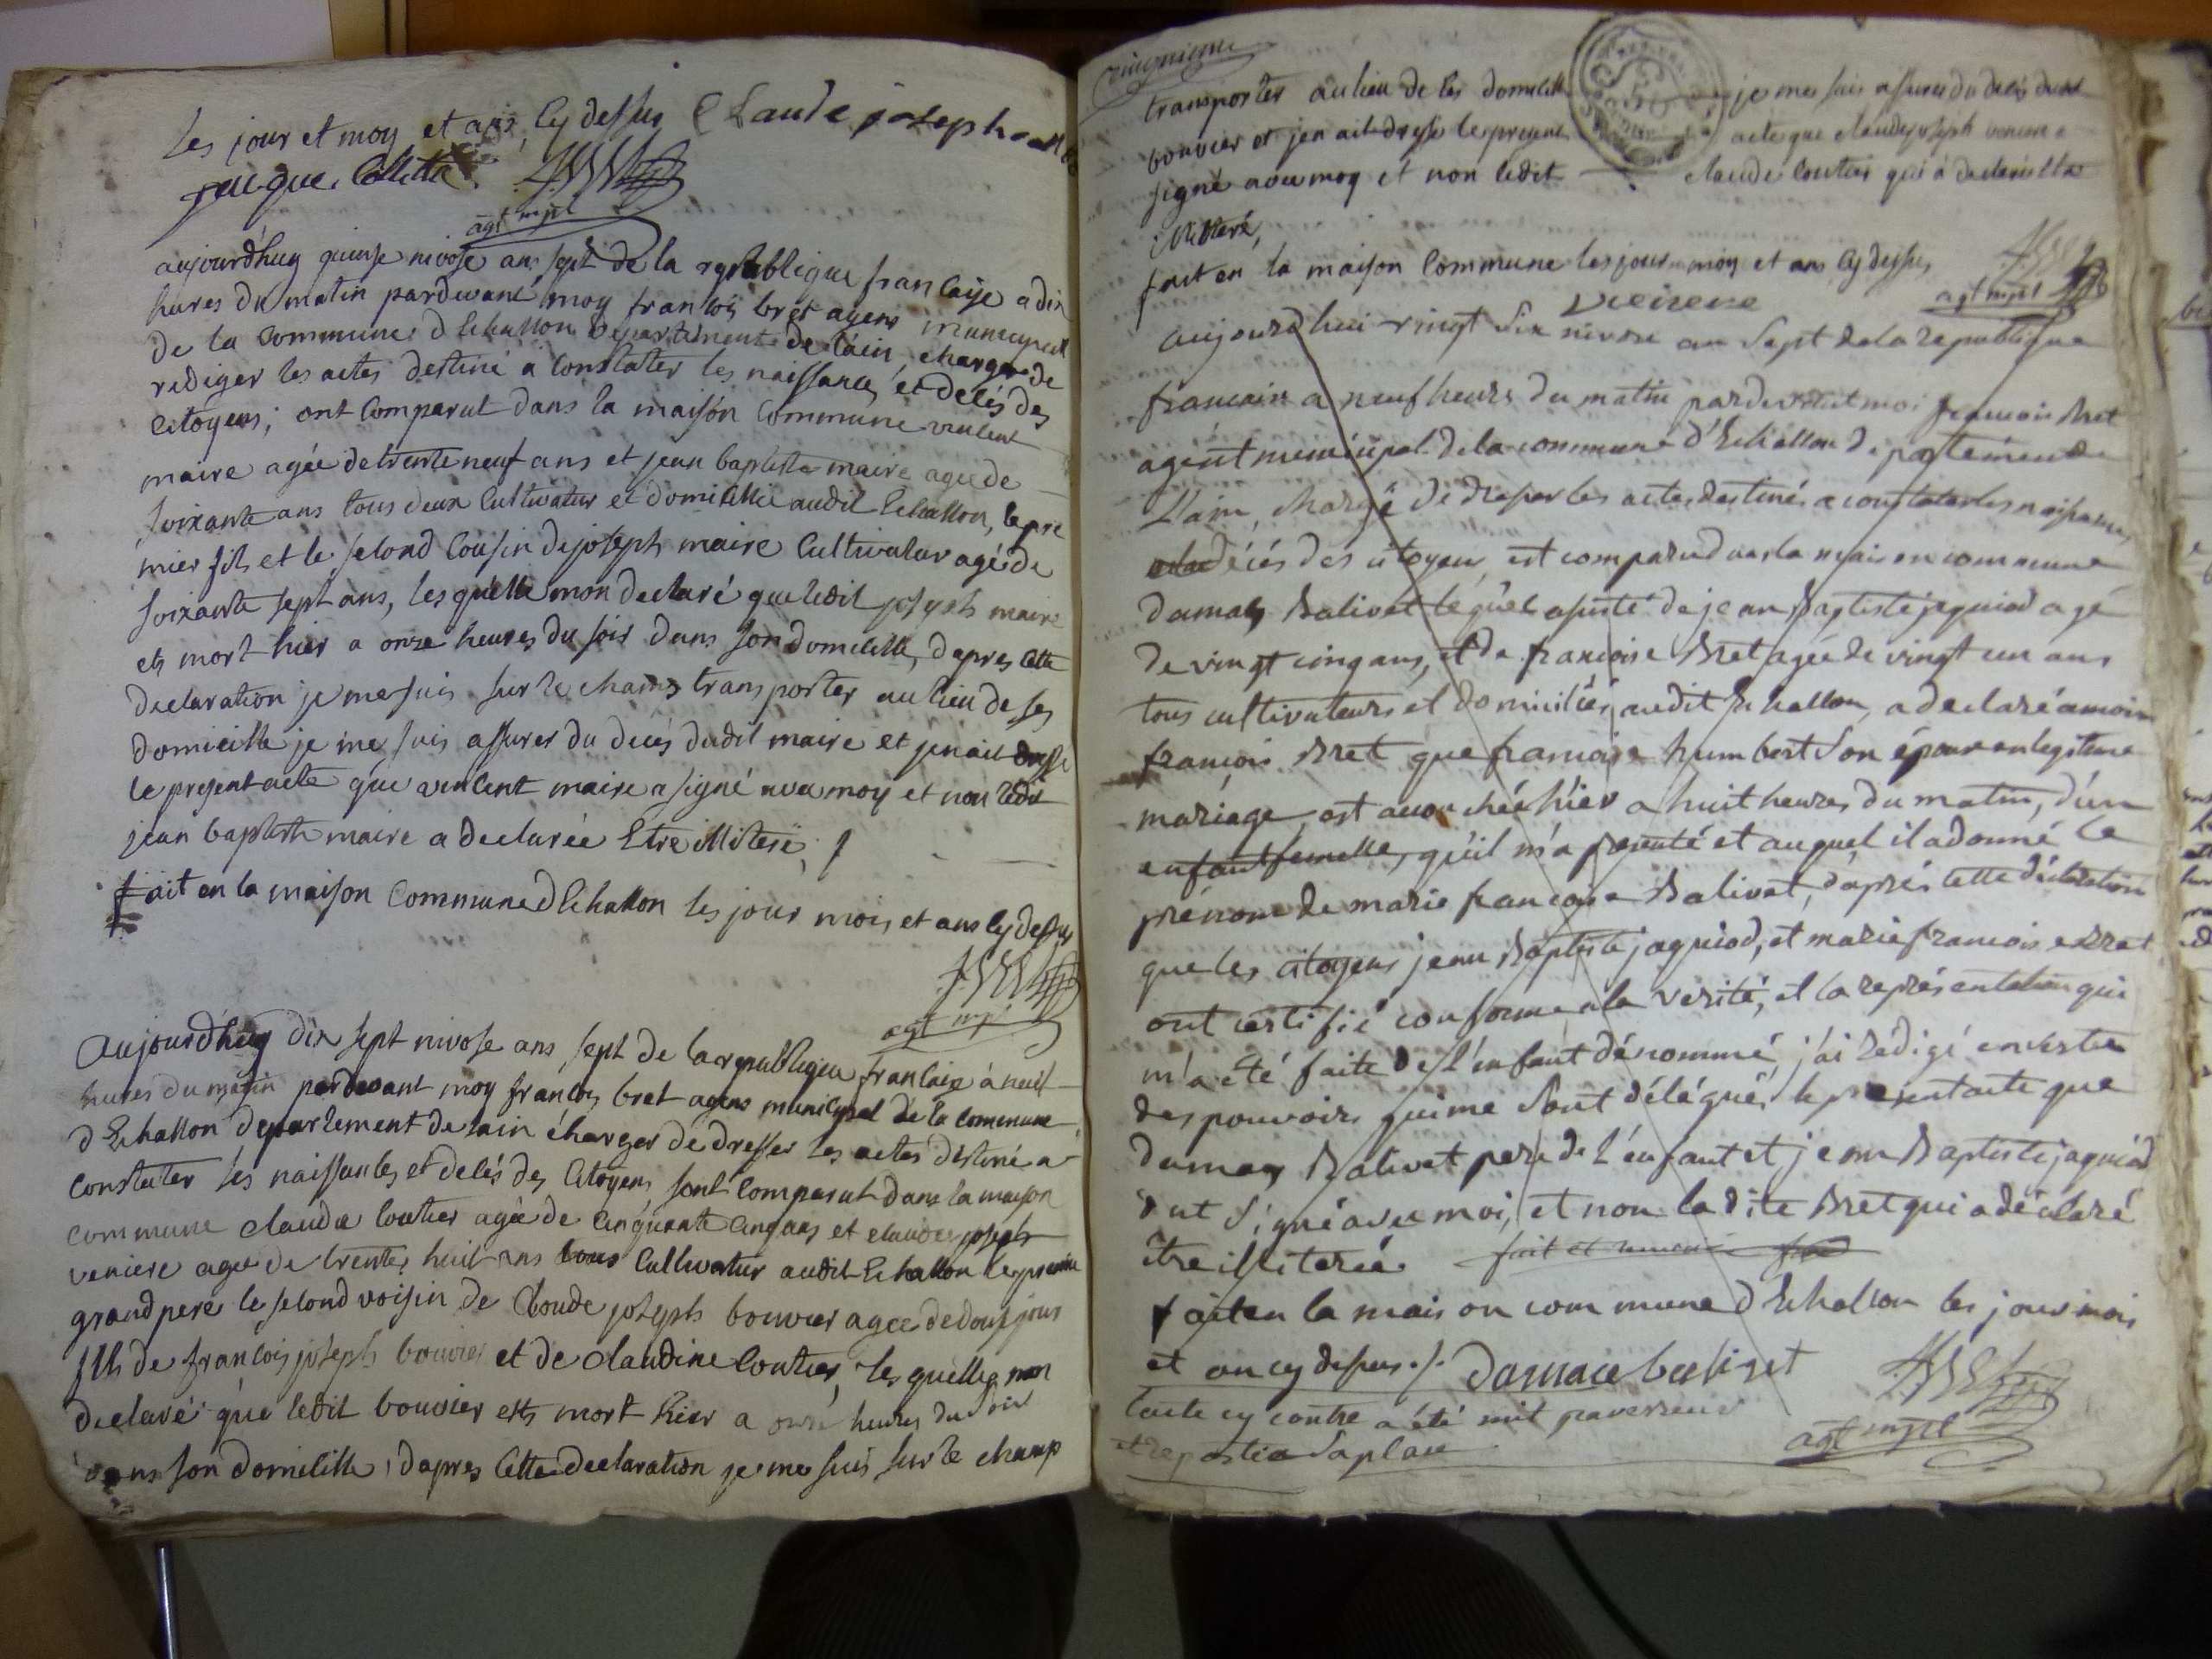 les jour et moy et ans cy dessus Claude joseph
jacque Collette
agt mpl
aujourd'huy quinse nivose ans sept de la republique francaise a dix
hures du matin pardevant moy francois bret agens municipal
de la Commune d'Echallon departement de lain, charger de
rediger les actes destiné a Constater les naissances et decés des
Citoyens; ont Comparut dans la maison Commune vincent
maire agée de trente neuf ans et jean baptiste maire agée de
soixante ans tous deux Cultivatur et domicillié audit Echallon, le pre
mier fils et le second Cousin de joseph maire Cultivatur agé de
soixante sept ans, lesquelle mon declaré que ledit joseph maire
ets mort hier a onze heures du soir dans son domicille, dapres cette
declaration je me suis sur le chams transporter au lieu de ses
domicille je me suis assurer du deces dudit maire et jenait dressé
le present acte que vincent maire a signé avec moy et non ledit
jean baptiste maire a declarée Etre illiteré
fait en la maison Commune d'Echallon les jour mois et ans cy dessus
agt mpl
Aujourd'huy dix sept nivose ans sept de la republique francaise à neuf
hures du matin pardevant moy francois bret agens municipal de la commune
d'Echallon departement de lain charger de dresser les actes destiné a
constater les naissances et decés des Citoyens sont Comparut dans la maison
commune claude Coutier agée de cinquante cinq ans et claude joseph
veniere agée de trente huit ans tous Cultivatur audit Echallon le premier
grand pere le second voisin de Claude joseph bouvier agée de douse jours
fils de francois joseph bouvier et de claudine Coutier, les quelles mon
declaré que ledit bouvier ets mort hier a onze heures du soir
dans son domicille, dapres cette declaration je me suis sur le champ
transporter au lieu de ses domicille je me suis assurer du decés dudit
bouvier et jen ait dressé le present acte que claude joseph veniere a
signé avec moy et non ledit claude Coutier qui à declaré Etre
illiteré,
fait en la maison Commune les jour moy et ans cy dessus
agt mpl
aujourd'hui vingt six nivose an sept de la republique
francaise a neuf heures du matin pardevant moi francois Bret
agent municipal de la commune d'Echallon departement de
L'ain, chargé de dresser les actes destinés a constater les naissances
et décés des citoyens, est comparu dans la maison commune
damas Balivet lequel assisté de jean Baptiste jaquiod agé
de vingt cinq ans, et de francoise Bret agée de vingt un ans
tous cultivateurs et domiciliés audit Echallon, a declaré a moi
francois Bret que francoise humbert son épouse en legitime
mariage, est accouchée hier a huit heures du matin, d'un
enfant femelle, qu'il m'a presenté et auquel il a donné le
prénom de marie francoise Balivet, d'aprés cette déclaration
que les citoyens jean Baptiste jaquiod, et marie francoise Bret
ont certifié conforme a la verité, et la représentation qui
m'a été faite de l'enfant dénommé, j'ai rédigé en vertu
des pouvoirs qui me sont délégués le present acte que
damas Balivet pere de l'enfant et jean Baptiste jaquiod
ont signé avec moi, et non la dite Bret qui a déclaré
être illiterée.
fait en la maison commune d'Echallon les jour mois
et an cy dessus. damace balivet
l'acte cy contre a été mit
et reporté a sa place
agt mpl